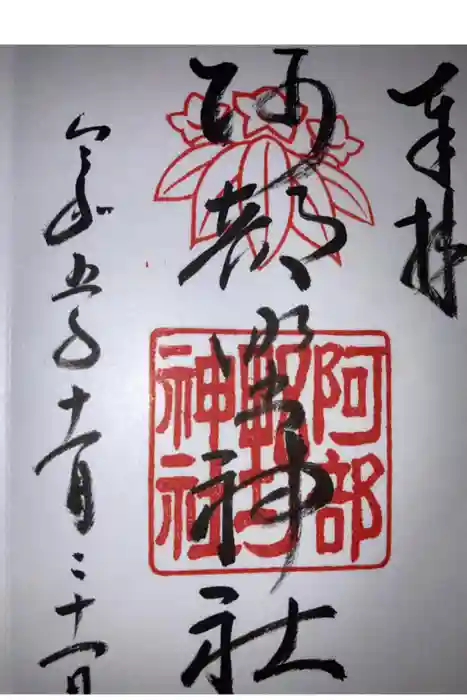 奉拝
阿部野神社
阿部
野
神社
令和五年十一月二十一日